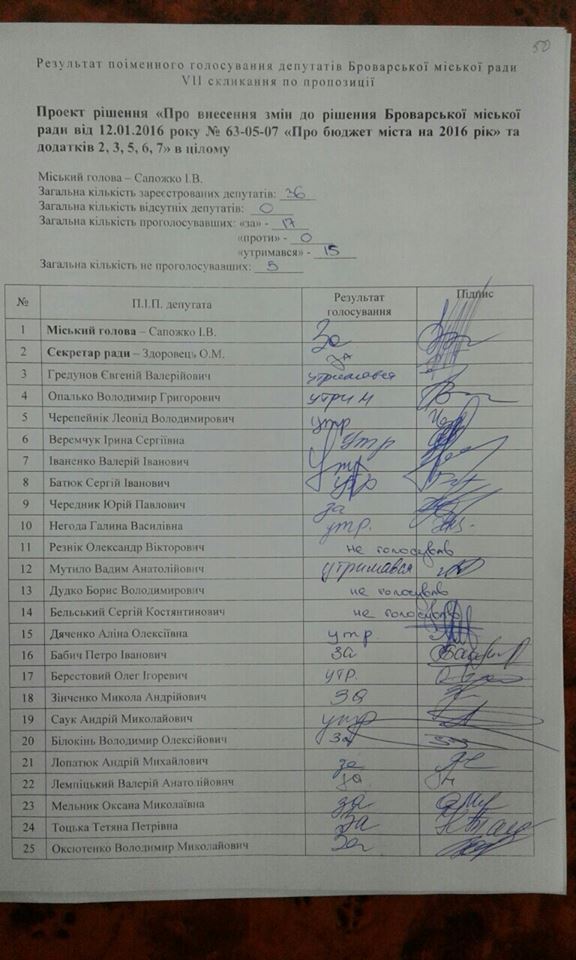 50
Результат поіменного голосування депутатів Броварської міської ради
VII скликання по пропозиції
Проект рішення «Про внесення змін до рішення Броварської міської
ради від 12.01.2016 року № 63-05-07 «Про бюджет міста на 2016 рік» та
додатків 2, 3, 5, 6, 7» в цілому
Міський голова – Сапожко І.В.
Загальна кількість зареєстрованих депутатів: 36
Загальна кількість відсутніх депутатів: 0
Загальна кількість проголосувавших: «за» - 17
«проти» - 0
«утримався» - 15
Загальна кількість не проголосувавших:
№ П.І.П. депутата Результат голосування Підпис
1 Міський голова – Сапожко І.В. За
2 Секретар ради – Здоровець О.М. за
3 Гредунов Євгеній Валерійович утримався
4 Опалько Володимир Григорович утрим
5 Черепейнік Леонід Володимирович утр
6 Веремчук Ірина Сергіївна Утр
7 Іваненко Валерій Іванович Утр
8 Батюк Сергій Іванович утр
9 Чередник Юрій Павлович за
10 Негода Галина Василівна утр.
11 Резнік Олександр Вікторович не голосував
12 Мутило Вадим Анатолійович утримався
13 Дудко Борис Володимирович не голосував
14 Бельський Сергій Костянтинович не голосував
15 Дяченко Аліна Олексіївна утр.
16 Бабич Петро Іванович за
17 Берестовий Олег Ігоревич утр.
18 Зінченко Микола Андрійович за
19 Саук Андрій Миколайович утр
20 Білокінь Володимир Олексійович за
21 Лопатюк Андрій Михайлович за
22 Лемпіцький Валерій Анатолійович за
23 Мельник Оксана Миколаївна за
24 Тоцька Тетяна Петрівна За
25 Оксютенко Володимир Миколайович За